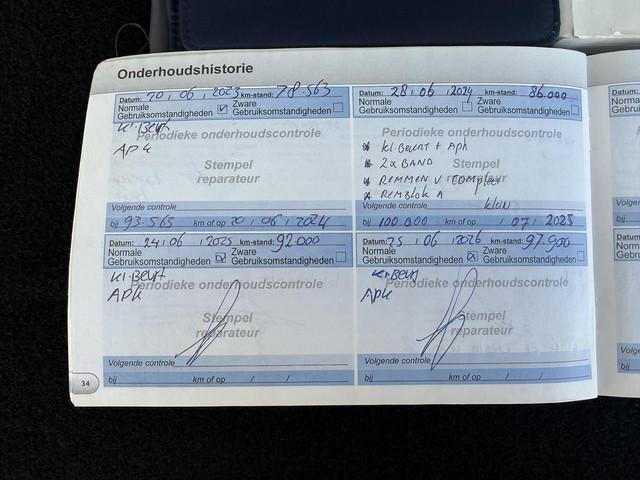 Onderhoudshistorie
Datum: 20 , 06 , 2023 km-stand: 78.563
Normale Gebruiksomstandigheden ☑ Zware Gebruiksomstandigheden ☐
Kl. Beurt
Periodieke onderhoudscontrole
APK
Stempel
reparateur
Volgende controle
bij 93.563 km of op 20 , 06 , 2024
Datum: 28 , 06 , 2024 km-stand: 86.000
Normale Gebruiksomstandigheden Zware Gebruiksomstandigheden ☐
Periodieke onderhoudscontrole
* Kl. Beurt + Apk
* 2x BAND
Stempel
* REMMEN V compleet
reparateur
* REMBlok A
Volgende controle klein
bij 100.000 km of op / 07 / 2025
Datum: 24 , 06 , 2025 km-stand: 92000
Normale Gebruiksomstandigheden ☑ Zware Gebruiksomstandigheden ☐
Kl. Beurt
Periodieke onderhoudscontrole
APK
Stempel
reparateur
Volgende controle
bij km of op / /
Datum: 25 , 06 , 2026 km-stand: 97.900
Normale Gebruiksomstandigheden ☑ Zware Gebruiksomstandigheden ☐
Kl. Beurt
Periodieke onderhoudscontrole
APK
Stempel
reparateur
Volgende controle
bij km of op / /
34